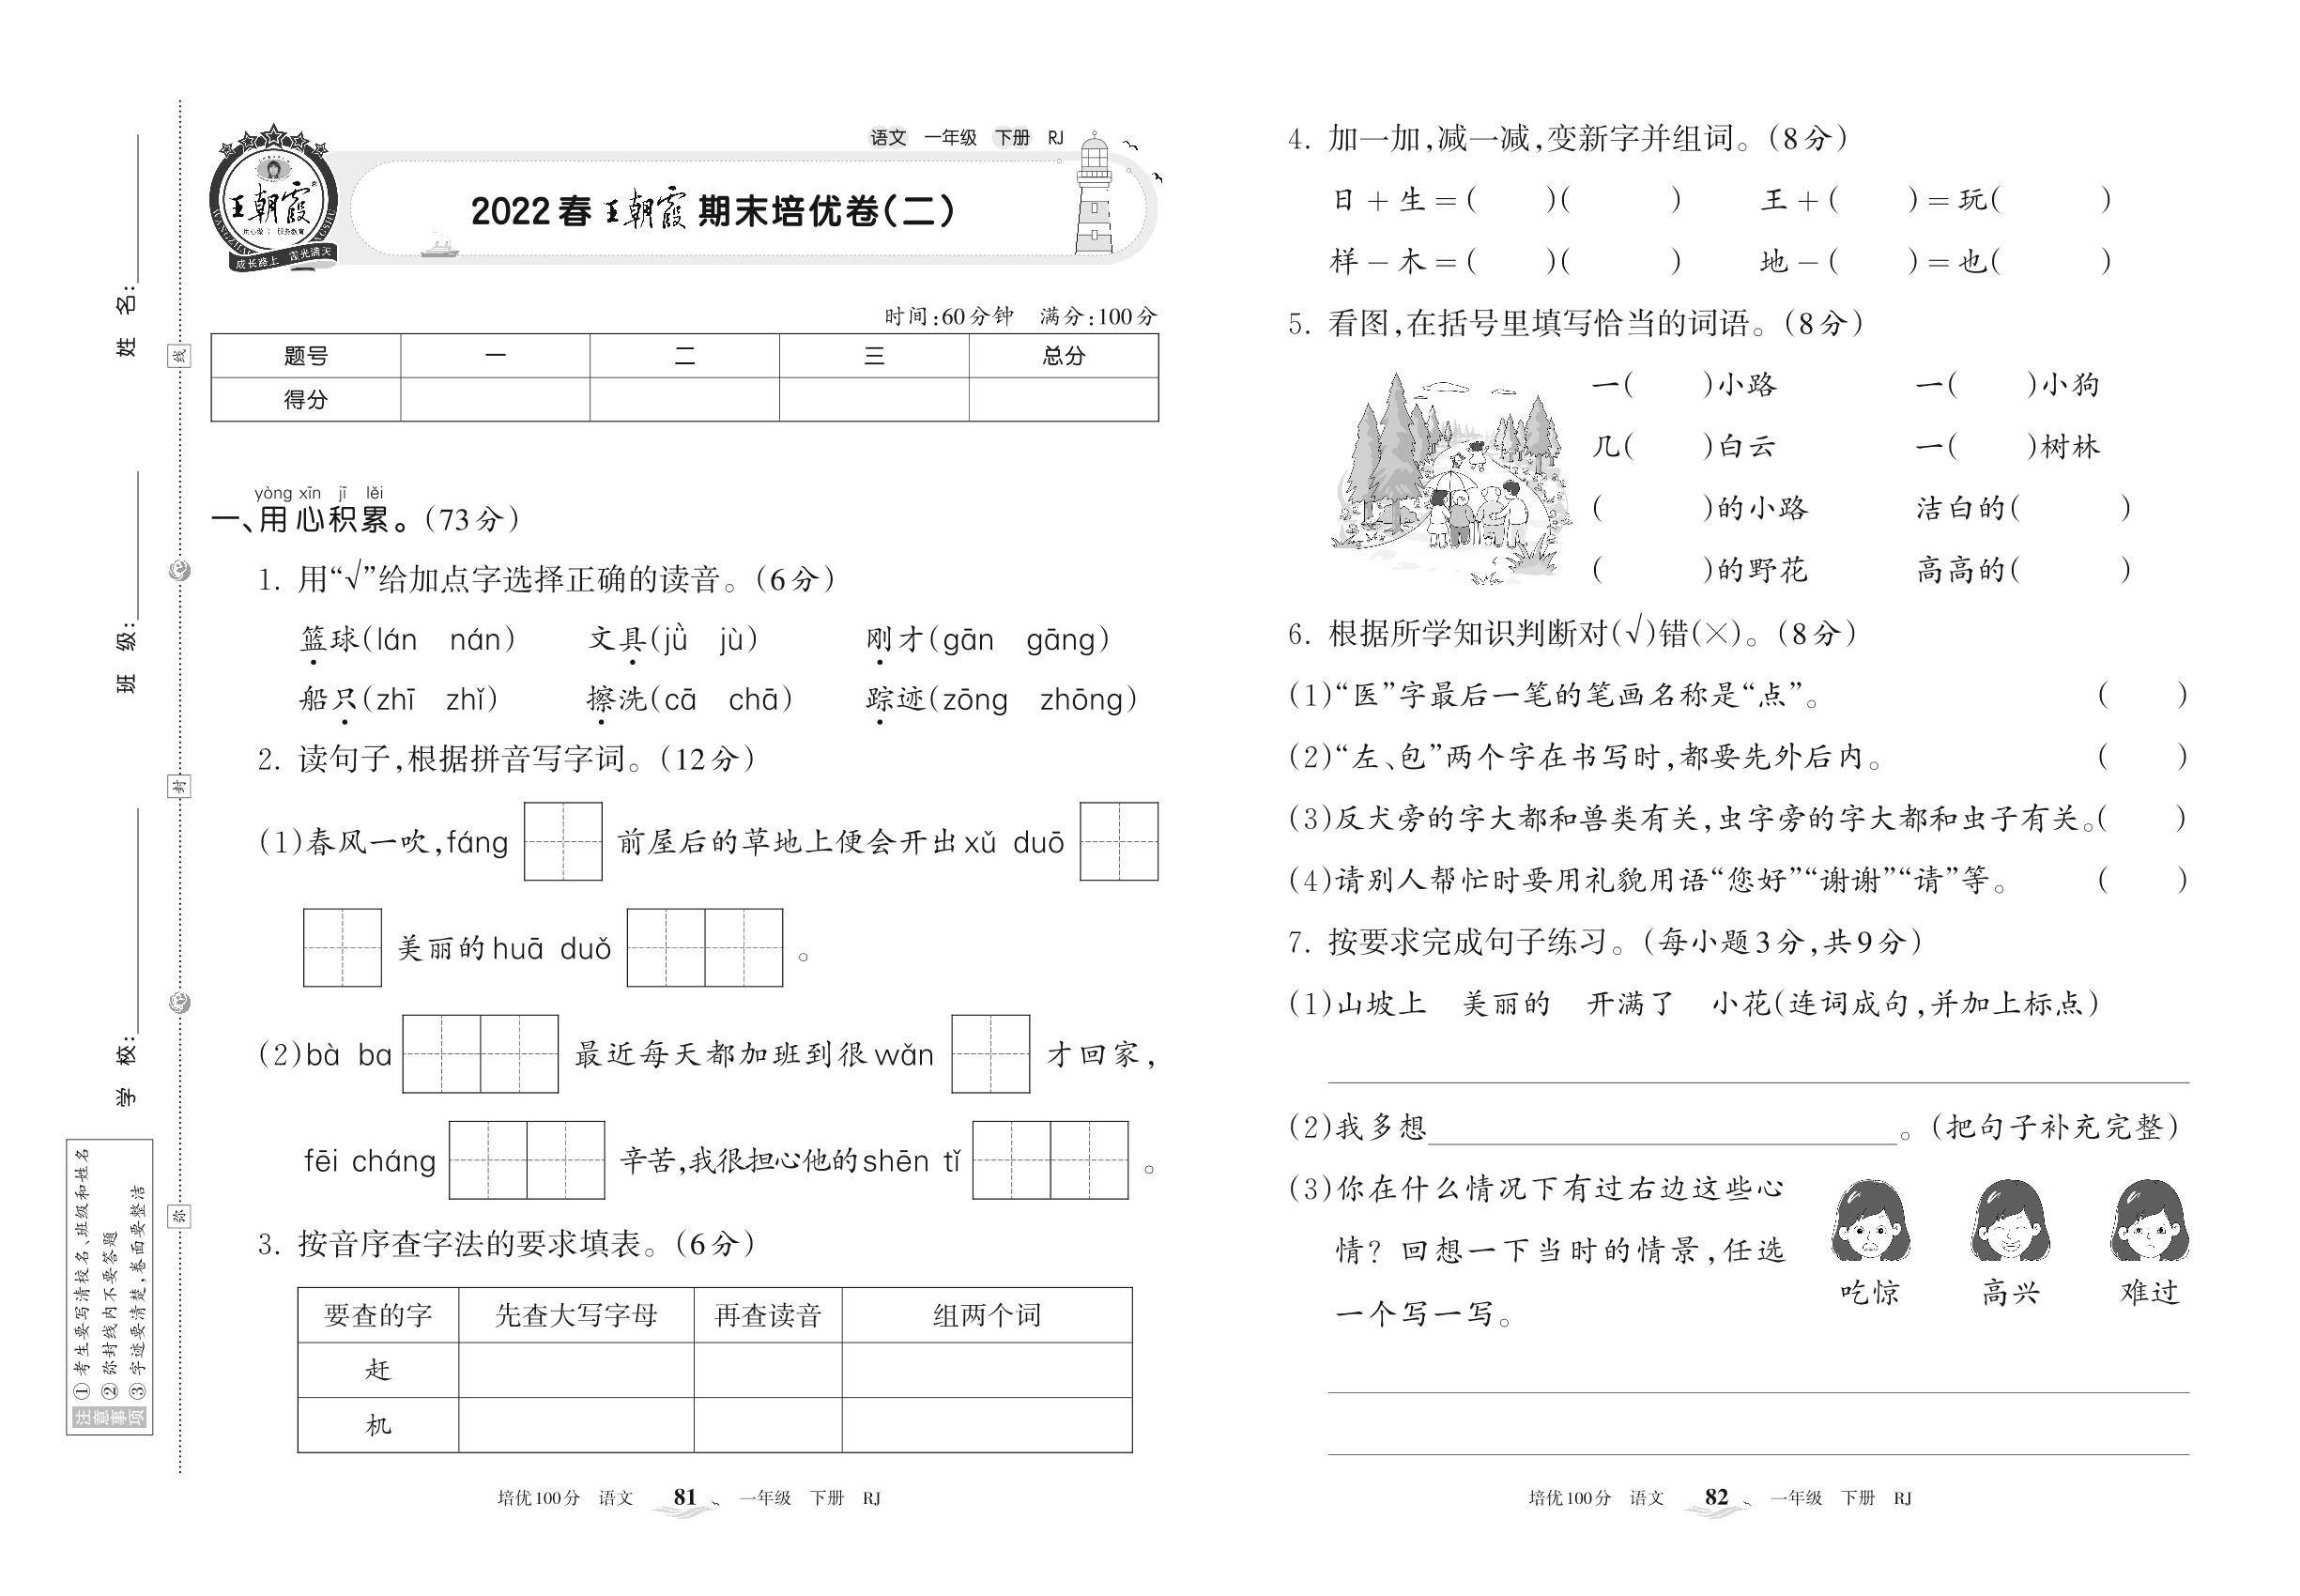 姓 名:
班 级:
学 校:
线
封
弥
注意事项
①考生要写清校名、班级和姓名
②弥封线内不要答题
③字迹要清楚,卷面要整洁
语文 一年级 下册 RJ
王朝霞
成长路上 霞光满天
2022春王朝霞期末培优卷(二)
时间:60分钟 满分:100分
题号 一 二 三 总分
得分
yòng xīn jī lěi
一、用心积累。(73分)
1. 用“√”给加点字选择正确的读音。(6分)
篮球(lán nán) 文具(jǜ jù) 刚才(gān gāng)
船只(zhī zhǐ) 擦洗(cā chā) 踪迹(zōng zhōng)
2. 读句子,根据拼音写字词。(12分)
(1)春风一吹,fáng 前屋后的草地上便会开出xǔ duō
美丽的huā duǒ 。
(2)bà ba 最近每天都加班到很wǎn 才回家,
fēi cháng 辛苦,我很担心他的shēn tǐ 。
3. 按音序查字法的要求填表。(6分)
要查的字 先查大写字母 再查读音 组两个词
赶
机
培优100分 语文 81 一年级 下册 RJ
4. 加一加,减一减,变新字并组词。(8分)
日+生=( )( ) 王+( )=玩( )
样-木=( )( ) 地-( )=也( )
5. 看图,在括号里填写恰当的词语。(8分)
一( )小路 一( )小狗
几( )白云 一( )树林
( )的小路 洁白的( )
( )的野花 高高的( )
6. 根据所学知识判断对(√)错(×)。(8分)
(1)“医”字最后一笔的笔画名称是“点”。 ( )
(2)“左、包”两个字在书写时,都要先外后内。 ( )
(3)反犬旁的字大都和兽类有关,虫字旁的字大都和虫子有关。( )
(4)请别人帮忙时要用礼貌用语“您好”“谢谢”“请”等。 ( )
7. 按要求完成句子练习。(每小题3分,共9分)
(1)山坡上 美丽的 开满了 小花(连词成句,并加上标点)
(2)我多想 。(把句子补充完整)
(3)你在什么情况下有过右边这些心
情? 回想一下当时的情景,任选
一个写一写。
吃惊 高兴 难过
培优100分 语文 82 一年级 下册 RJ